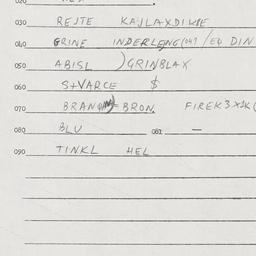 020
030 REJTE KAJLAXDIKSE
040 GRINE INDERLENG(047/E4 DIN
050 ABISL )GRINBLAX
060 S+VARCE $
070 BRAN = BRON. FIREK3X1K(
080 BLU 081 —
090 TINKL HEL